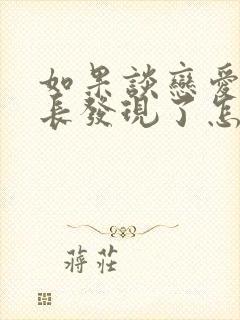 如果談戀愛
長發現了怎
蔣莊